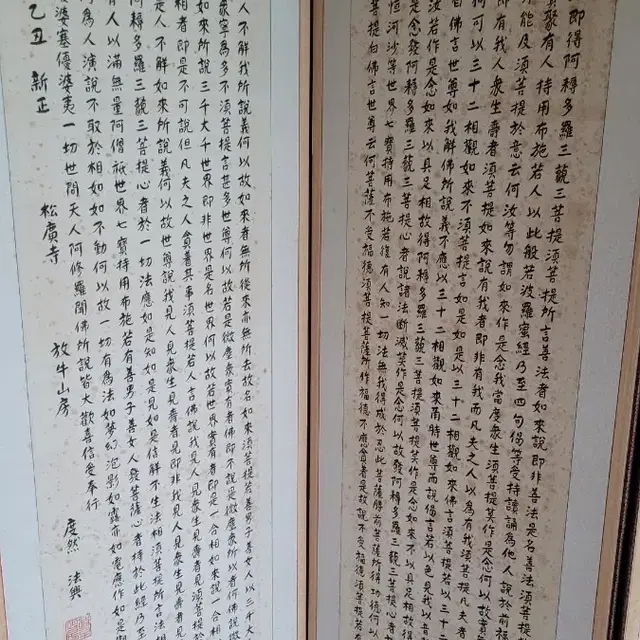 即得阿耨多羅三藐三菩提須菩提所言善法者如來說即非善法是名善法須菩提
寶聚有人持用布施若人以此般若波羅蜜經乃至四句偈等受持讀誦為他人說於前福
能及須菩提於意云何汝等勿謂如來作是念我當度衆生須菩提莫作是念何以故實
即有我人衆生壽者須菩提如來說有我者即非有我而凡夫之人以為有我須菩提凡夫者
何可以三十二相觀如來不須菩提言如是如是以三十二相觀如來佛言須菩提若以三
白佛言世尊如我解佛所說義不應以三十二相觀如來爾時世尊而說偈言若以色見我以
汝若作是念如來不以具足相故得阿耨多羅三藐三菩提須菩提莫作是念如來不以具足相故得
是念發阿耨多羅三藐三菩提心者說諸法斷滅莫作是念何以故發阿耨多羅三藐三菩提心者
恒河沙等世界七寶持用布施若復有人知一切法無我得成於忍此菩薩勝前菩薩所得功德何以
菩提白佛言世尊云何菩薩不受福德須菩提菩薩所作福德不應貪著是故說不受福德須菩提若有
人不解我所說義何以故如來者無所從來亦無所去故名如來須菩提若善男子善女人以三千大
衆寧為多不須菩提言甚多世尊何以故若是微塵衆實有者佛即不說是微塵衆所以者何佛說微
如來所說三千大千世界即非世界是名世界何以故若世界實有者即是一合相如來說一合相
相者即是不可說但凡夫之人貪著其事須菩提若人言佛說我見人見衆生見壽者見須菩提於
是人不解如來所說義何以故世尊說我見人見衆生見壽者見即非我見人見衆生見壽者見
阿耨多羅三藐三菩提心者於一切法應如是知如是見如是信解不生法相須菩提所言
有人以滿無量阿僧祇世界七寶持用布施若有善男子善女人發菩薩心者持於此經乃至
何為人演說不取於相如如不動何以故一切有為法如夢幻泡影如露亦如電應作如是觀
婆塞優婆夷一切世間天人阿修羅聞佛所說皆大歡喜信受奉行
乙丑 新正 松廣寺 放牛山房 度然 法興